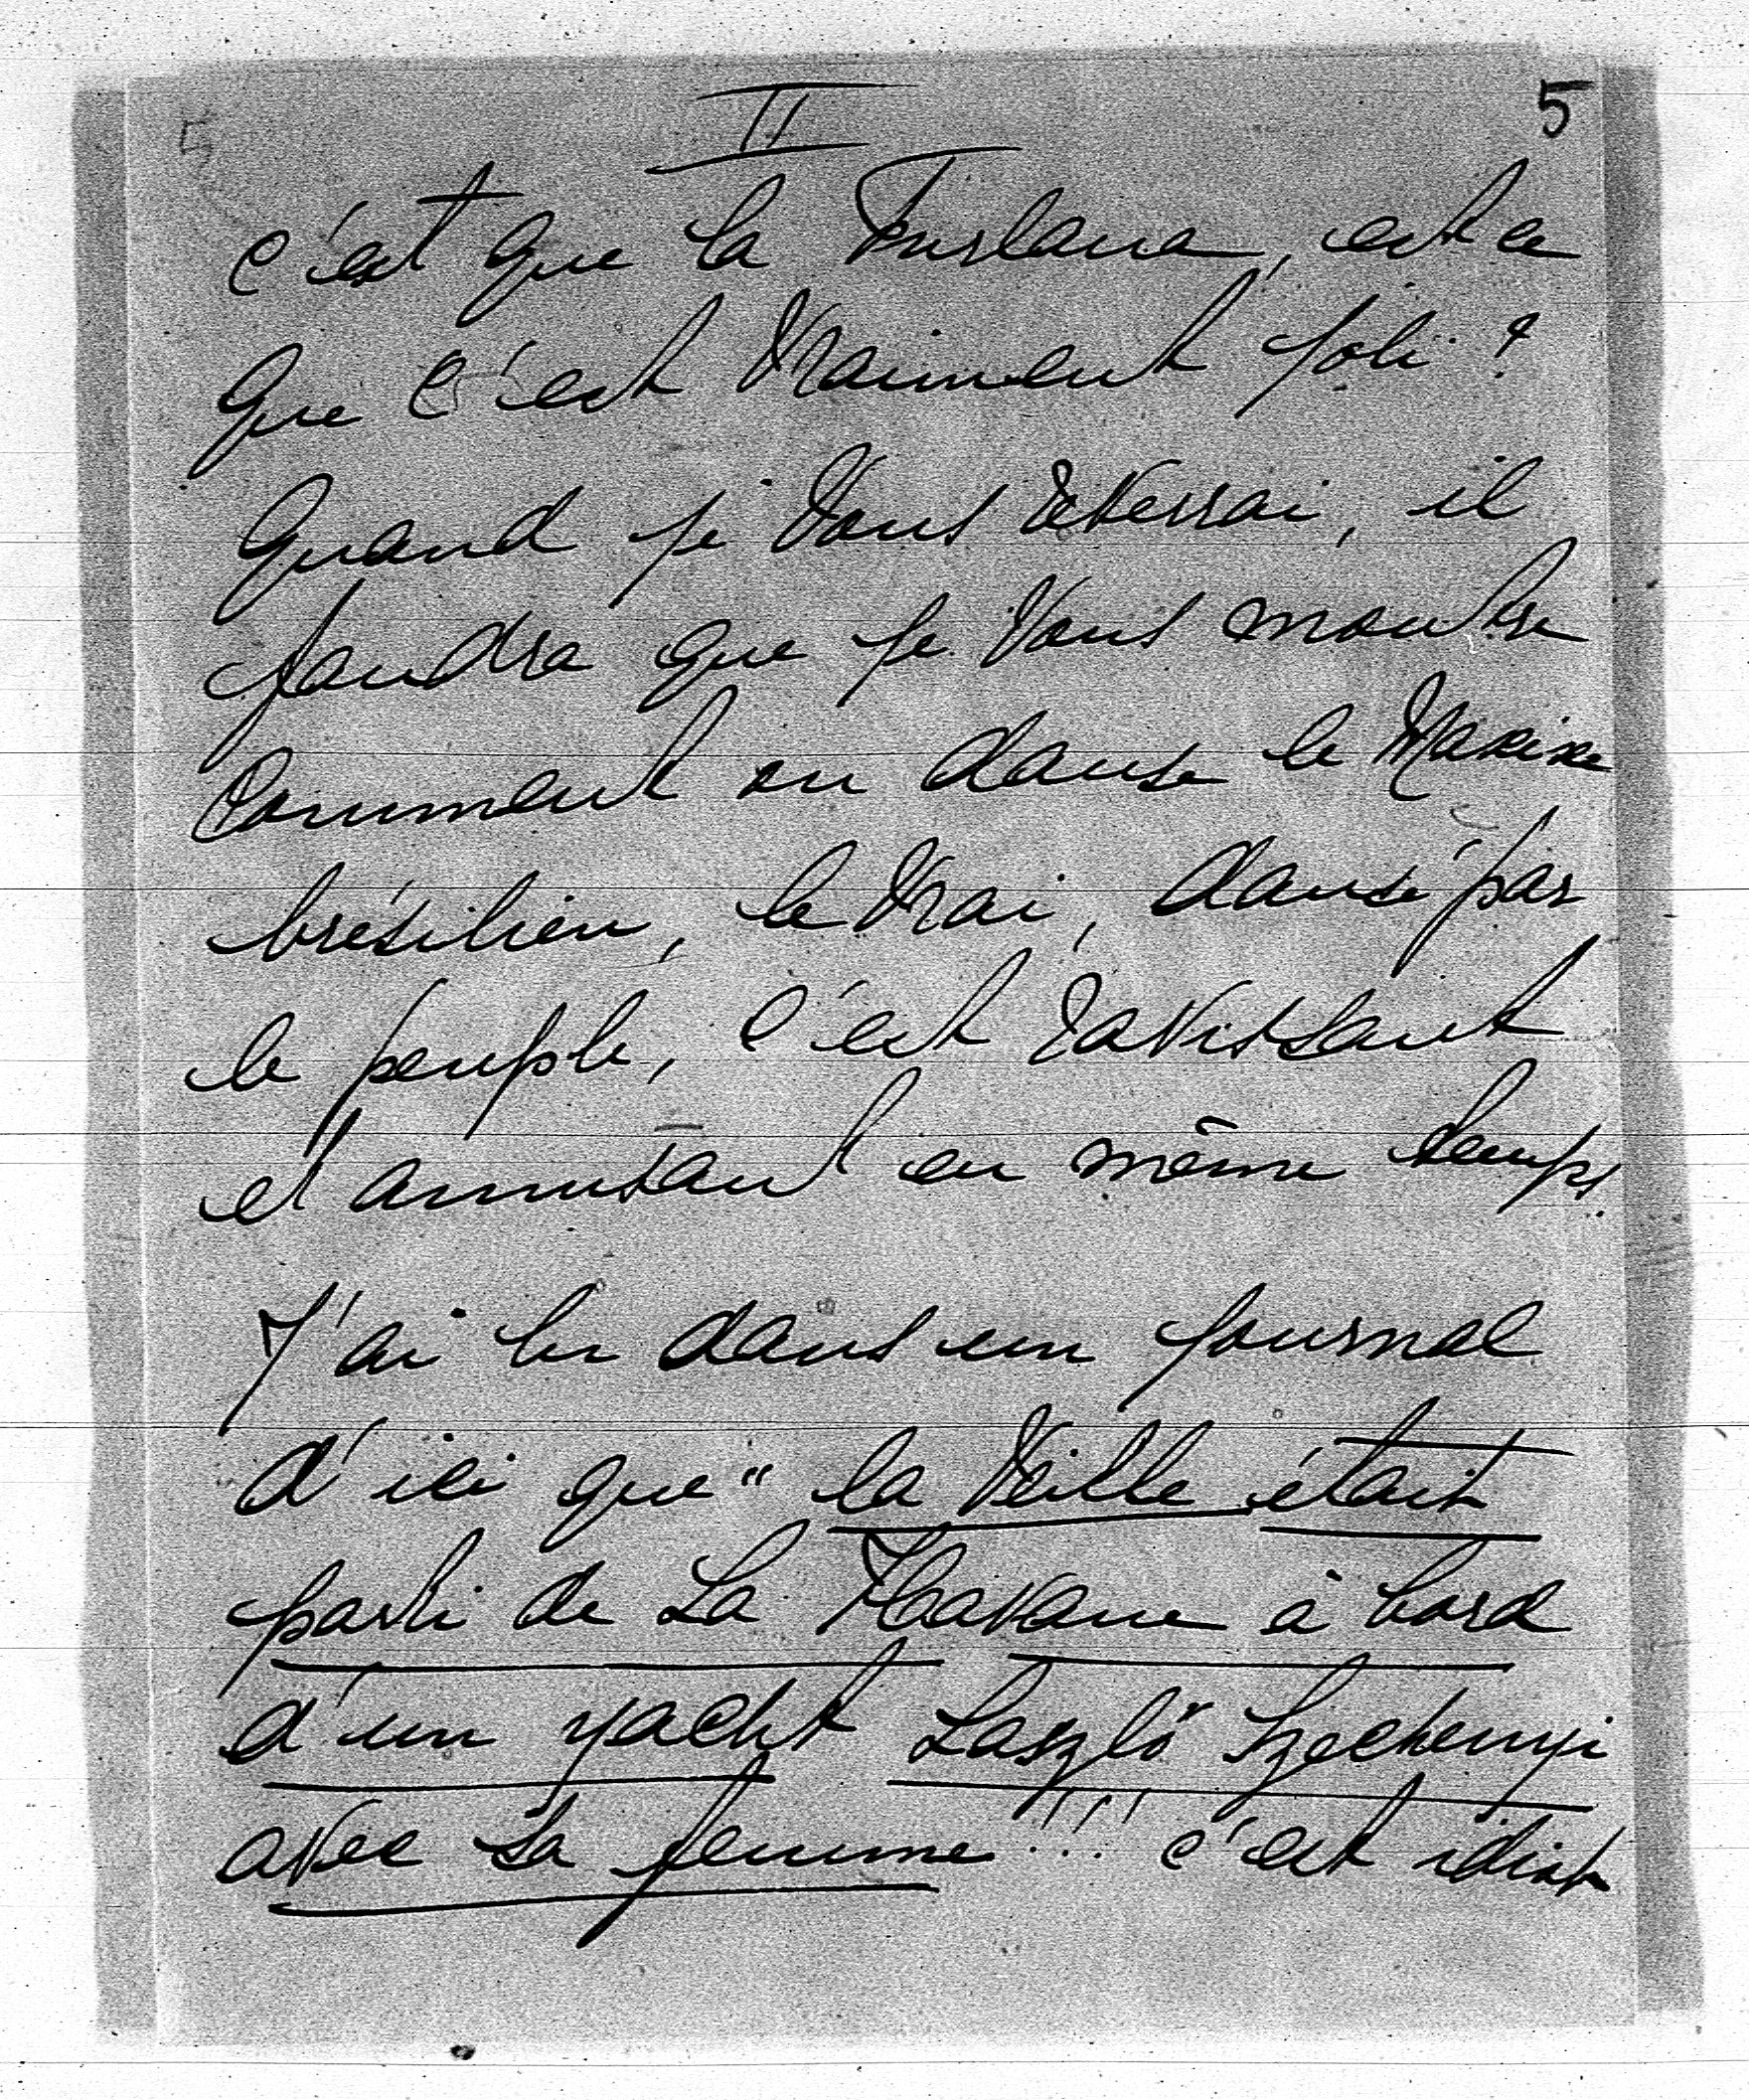 5 II 5
c'est que la Furlana, est ce
que c'est vraiment joli ?
Quand je vous reverrai, il
faudra que je vous montre
comment on danse le Maxixe
brésilien, le vrai, dansé par
le peuple, c'est ravissant
et amusant en même temps.
J'ai lu dans un journal
d'ici que " la veille était
parti de La Havane à bord
d'un yacht Laszló Szechenyi
avec sa femme !!! c'est idiot